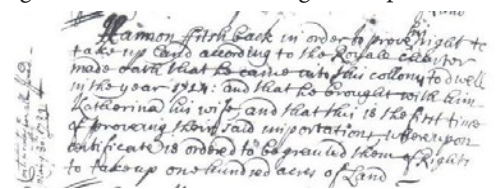 Land
Harmon ffitsh back in order to prove his right to
take up land according to the Royale charter
made oath that he came into this collony to dwell
in the year 1714: and that he brought with him
Katherina his wife, and that this is the first time
of proveing their said importations whereupon
certificate is ordered to be granted them of Rights
to take up one hundred acres of Land